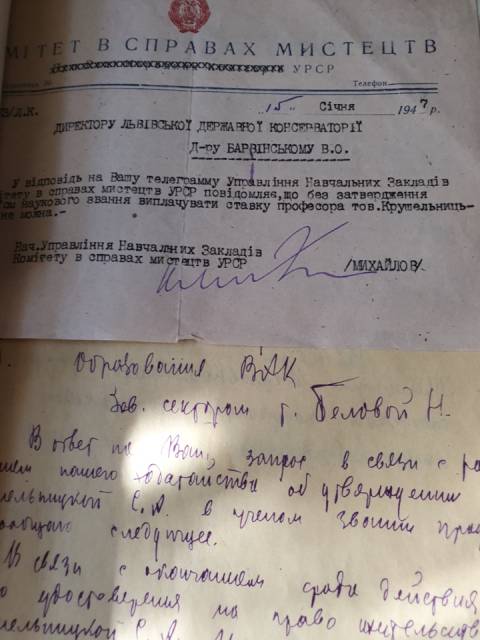 МІТЕТ В СПРАВАХ МИСТЕЦТВ
УРСР
Телефон
15 Січня 1947 р.
ДИРЕКТОРУ ЛЬВІВСЬКОЇ ДЕРЖАВНОЇ КОНСЕРВАТОРІЇ
Д-ру БАРВІНСЬКОМУ В.О.
У відповідь на Вашу телеграмму Управління Навчальних Закладів
ітету в справах мистецтв УРСР повідомляє, що без затвердження
наукового звання виплачувати ставку професора тов.Крушельниць-
не можна.-
Нач.Управління Навчальних Закладів
Комітету в справах мистецтв УРСР
/МИХАЙЛОВ/
Образования ВАК
Зав. сектором т. Беловой Н.
В ответ на Ваш запрос в связи с ра
нием нашего ходатайства об утверждении
ельницкой С.А. в ученом звании проф
ообщаю следующее.
В связи с окончанием срока действия
о удостоверения на право жительств
ельницкой С.А.